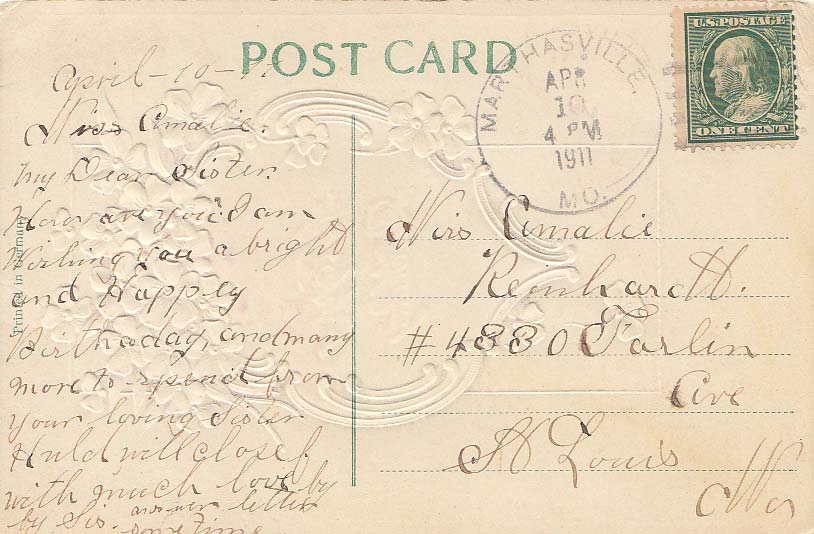 POST CARD
U.S. POSTAGE
ONE CENT
MARTHASVILLE,
APR
10
4 PM
1911
MO.
Printed in Germany
April-10-11
Miss Amalie.
my Dear Sister.
How are you? I am
Wishing you a bright
and Happey
Birthaday, and many
more to spend from
your loving Sister
Huld will close
with much love by
by Sis. answer letter
some time
Miss Amalie
Reinhardt.
#4330 Farlin
Ave
St Louis
Mo